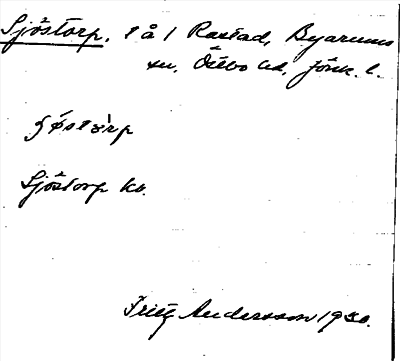 Sjöstorp, t å 1 Rastad, Byarums
sn, Östbo hd, Jönk. l.
Sjöstorp ko.
Fritz Andersson 1930.